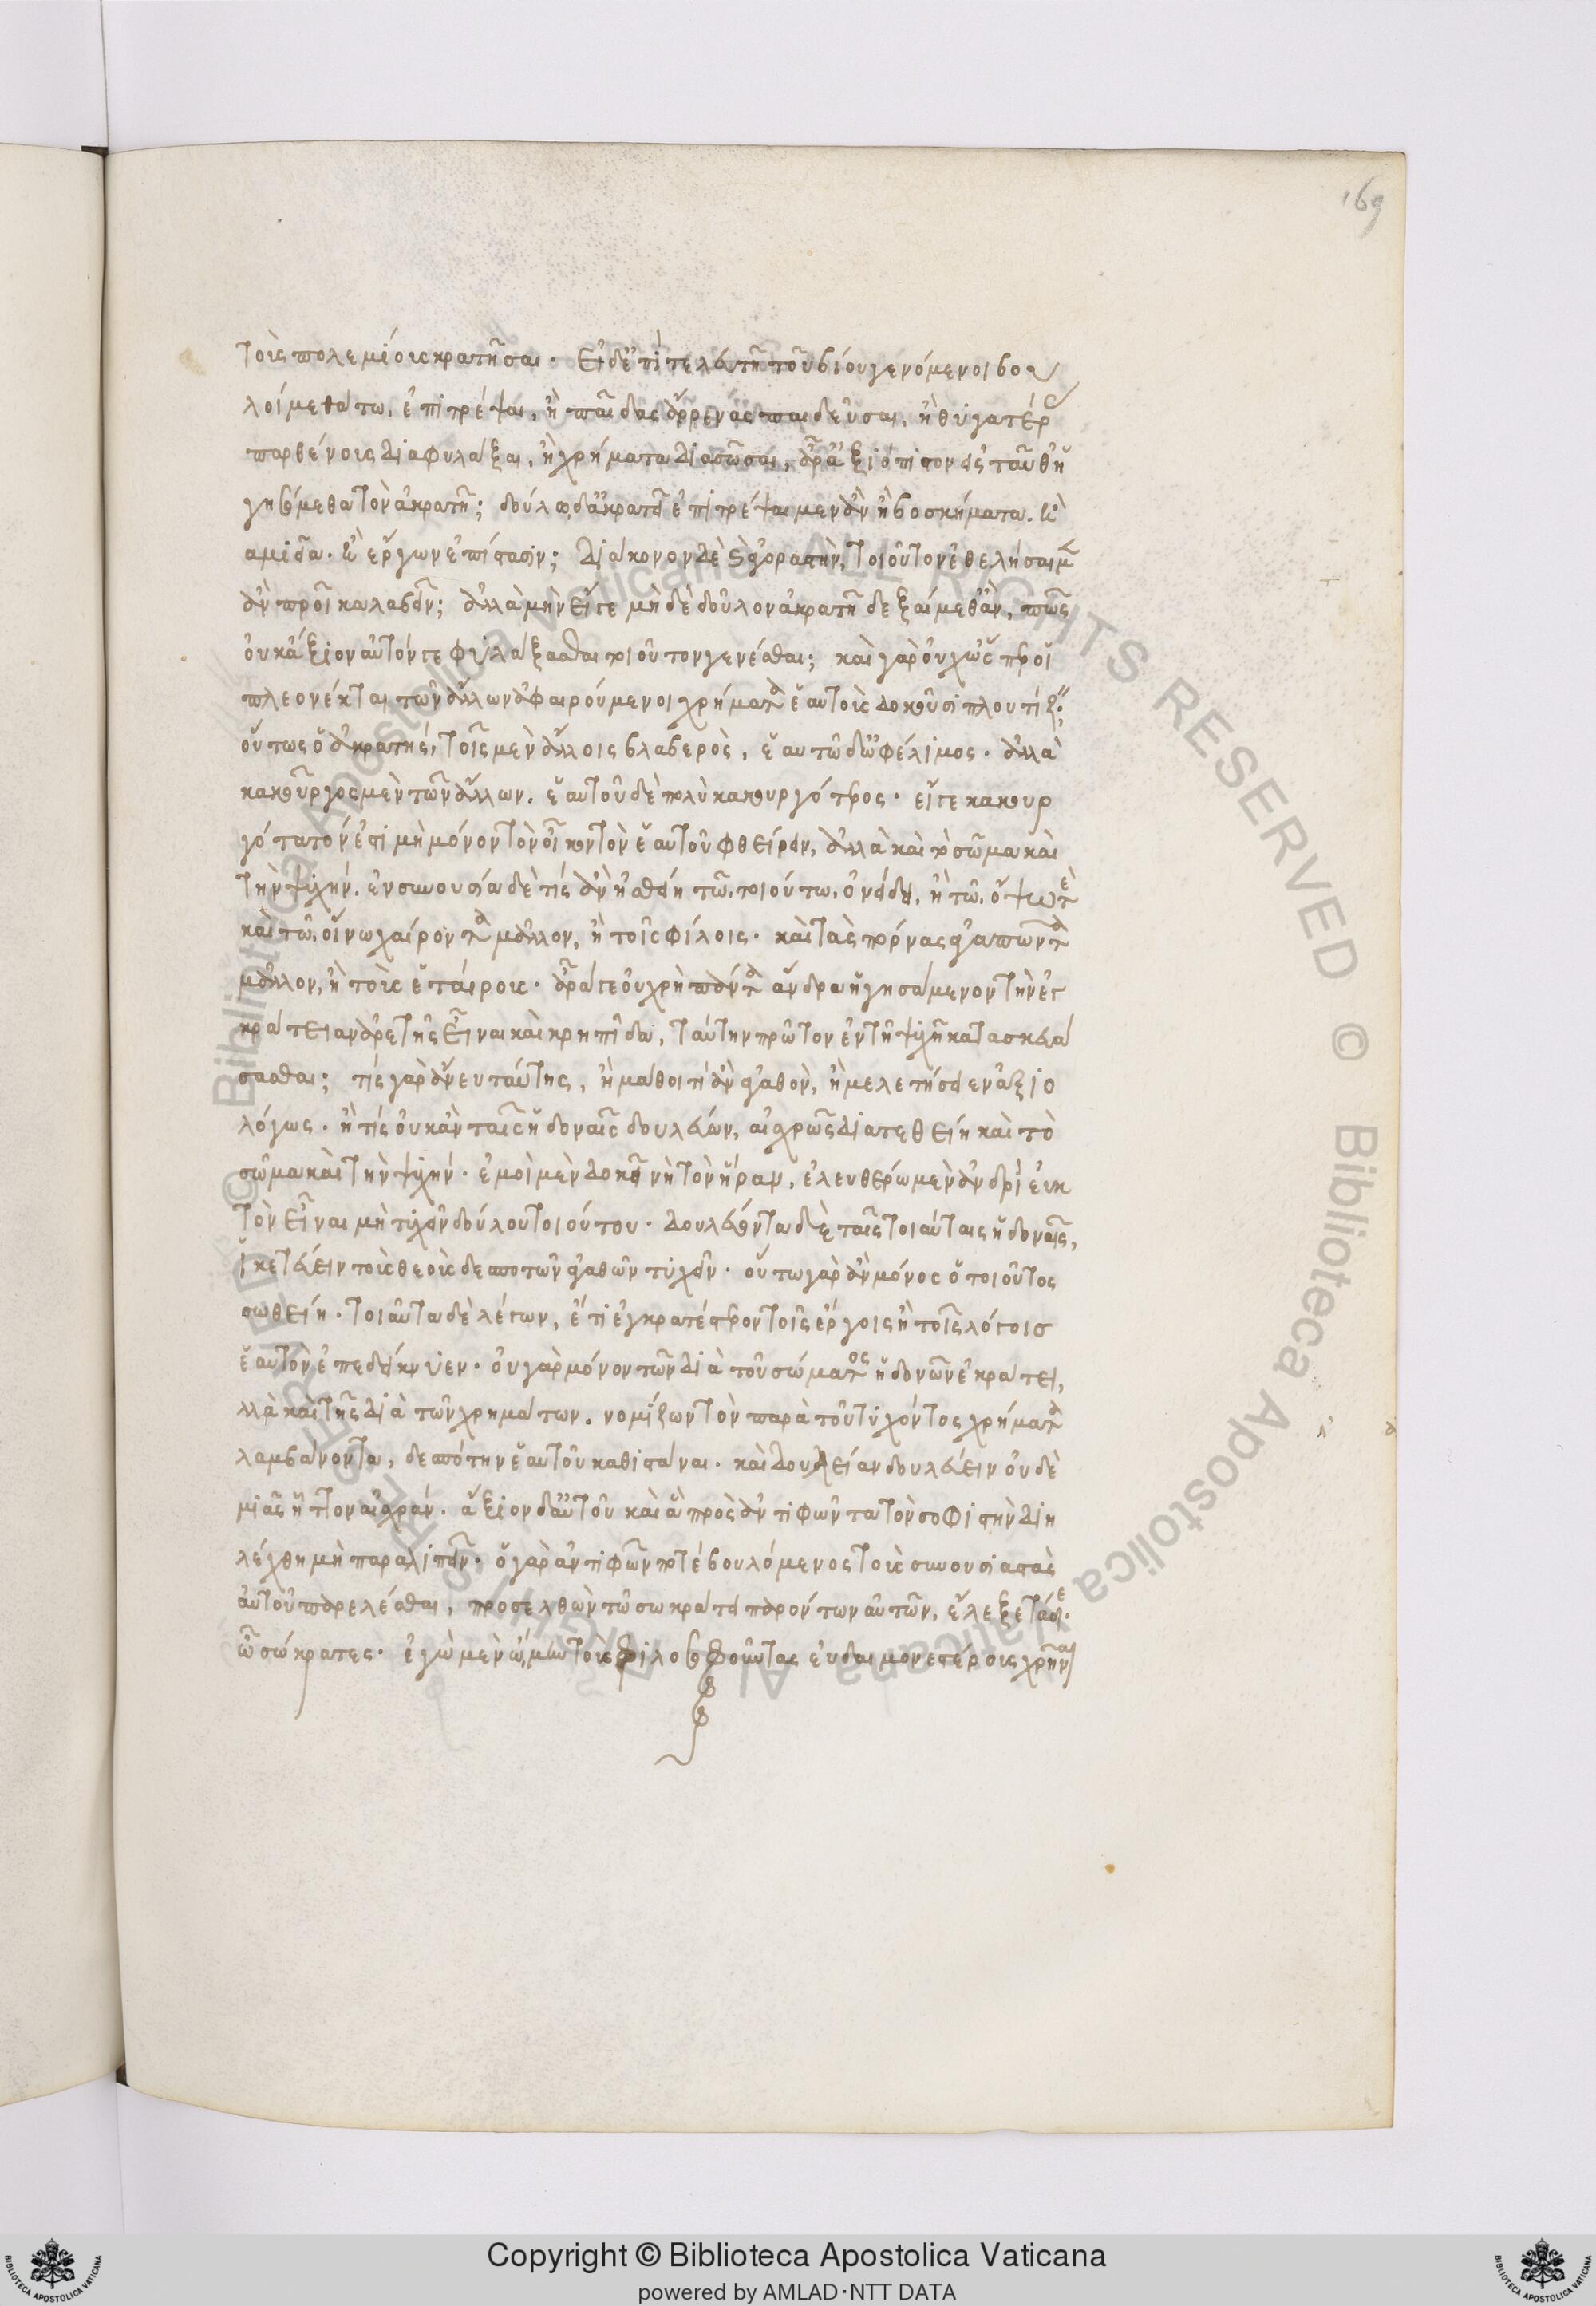 169
τοὺς πολεμίους κρατῆσαι. εἰ δ' ἐπὶ τελευτῆ τοῦ βίου γενόμενοι βου
λοίμεθά τω ἐπιτρέψαι, ἢ παῖδας ἄρρενας παιδεῦσαι, ἢ θυγατέρ
παρθένους διαφυλάξαι, ἢ χρήματα διασῶσαι, ἆρ' ἀξιόπιστον εἰς ταῦθ' ἡ
γησόμεθα τὸν ἀκρατῆ; δούλω δ' ἀκρατεῖ ἐπιτρέψαιμεν ἂν ἢ βοσκήματα. ἢ
ταμιεῖα. ἢ ἔργων ἐπίστασιν; διάκονον δὲ καὶ ἀγοραστὴν, τοιοῦτον ἐθελήσαιμεν
ἂν προῖκα λαβεῖν; ἀλλὰ μὴν εἴ γε μηδὲ δοῦλον ἀκρατῆ δεξαίμεθ' ἂν, πῶς
οὐκ ἄξιον αὐτόν γε φυλάξασθαι τοιοῦτον γενέσθαι; καὶ γὰρ οὐχ ὥσπερ οἱ
πλεονέκται τῶν ἄλλων ἀφαιρούμενοι χρήματα ἑαυτοὺς δοκοῦσι πλουτίζειν,
οὕτως ὁ ἀκρατής, τοῖς μὲν ἄλλοις βλαβερὸς, ἑαυτῶ δ' ὠφέλιμος. ἀλλὰ
κακοῦργος μὲν τῶν ἄλλων. ἑαυτοῦ δὲ πολὺ κακουργότερος. εἴ γε κακουρ
γότατόν ἐστι μὴ μόνον τὸν οἶκον τὸν ἑαυτοῦ φθείρειν, ἀλλὰ καὶ τὸ σῶμα καὶ
τὴν ψυχήν. ἐν συνουσία δὲ τίς ἂν ἡσθείη τῶ τοιούτω, ὃν εἰδείη τῶ ὄψω τε
καὶ τῶ οἴνω χαίροντα μᾶλλον, ἢ τοῖς φίλοις. καὶ τὰς πόρνας ἀγαπῶντα
μᾶλλον, ἢ τοὺς ἑταίρους. ἆρά γε οὐ χρὴ πάντα ἄνδρα ἡγησάμενον τὴν ἐγ
κράτειαν ἀρετῆς εἶναι καὶ κρηπῖδα, ταύτην πρῶτον ἐν τῆ ψυχῆ κατασκευά
σασθαι; τίς γὰρ ἄνευ ταύτης, ἢ μάθοι τι ἂν ἀγαθὸν, ἢ μελετήσειεν ἀξιο
λόγως. ἢ τίς οὐκ ἂν ταῖς ἡδοναῖς δουλεύων, αἰσχρῶς διατεθείη καὶ τὸ
σῶμα καὶ τὴν ψυχήν. ἐμοὶ μὲν δοκεῖ νὴ τὸν ἥραν, ἐλευθέρω μὲν ἀνδρὶ εὐκ
τὸν εἶναι μὴ τυχεῖν δούλου τοιούτου. δουλεύοντα δὲ ταῖς τοιαύταις ἡδοναῖς,
ἱκετεύειν τοὺς θεοὺς δεσποτῶν ἀγαθῶν τυχεῖν. οὕτω γὰρ ἂν μόνος ὁ τοιοῦτος
σωθείη. τοιαῦτα δὲ λέγων, ἔτι ἐγκρατέστερον τοῖς ἔργοις ἢ τοῖς λόγοισ
ἑαυτὸν ἐπεδείκνυεν. οὐ γὰρ μόνον τῶν διὰ τοῦ σώματος ἡδονῶν ἐκράτει,
ἀλλὰ καὶ τῆς διὰ τῶν χρημάτων. νομίζων τὸν παρὰ τοῦ τυχόντος χρήματα
λαμβάνοντα, δεσπότην ἑαυτοῦ καθιστάναι. καὶ δουλείαν δουλεύειν οὐδε
μιᾶς ἧττον αἰσχράν. ἄξιον δ' αὐτοῦ καὶ ἃ πρὸς ἀντιφῶντα τὸν σοφιστὴν διη
λέχθη μὴ παραλιπεῖν. ὁ γὰρ ἀντιφῶν ποτὲ βουλόμενος τοὺς συνουσιαστὰς
αὐτοῦ παρελέσθαι, προσελθὼν τῶ σωκράτει παρόντων αὐτῶν, ἔλεξε τάδε.
ὦ σώκρατες. ἐγὼ μὲν ὤμην τοὺς φιλοσοφοῦντας εὐδαιμονεστέρους χρῆναι